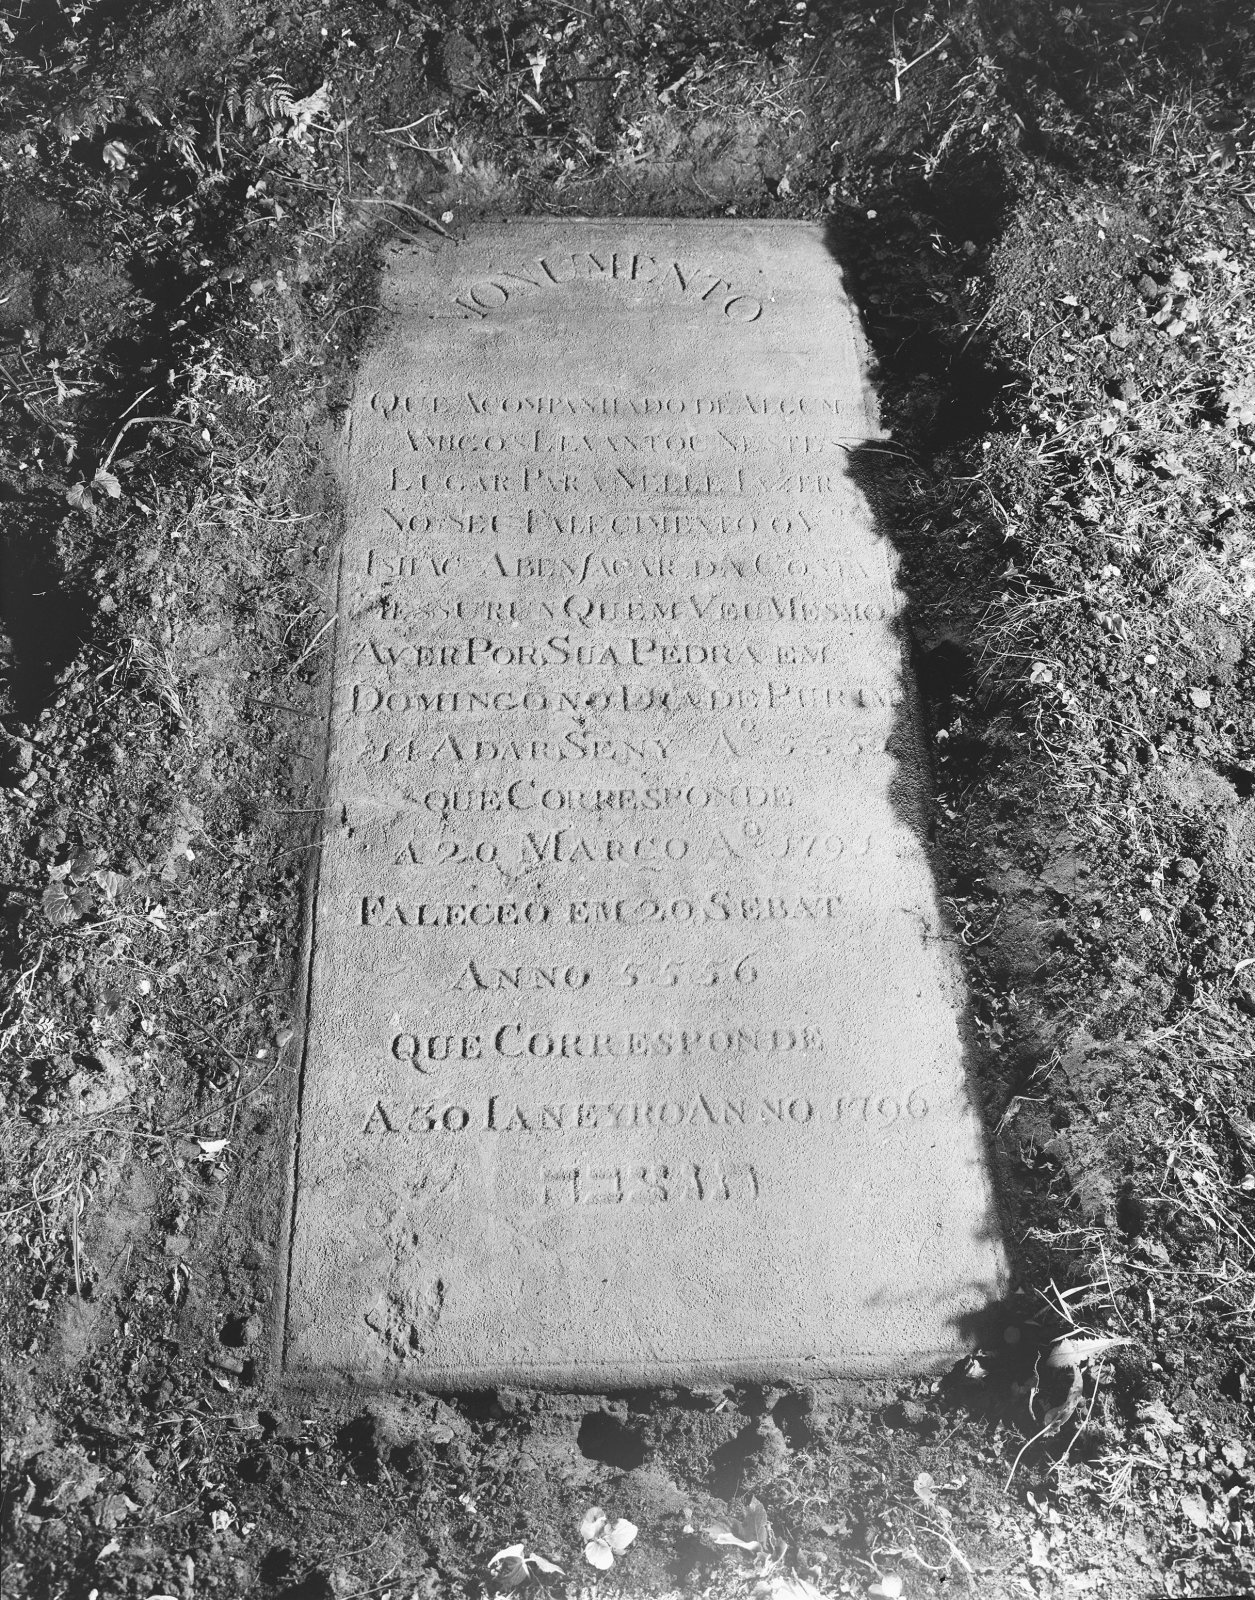 MONUMENTO
QUE ACOMPANHADO DE ALGUM
AMIGOS LEVANTOU NESTE
LUGAR PARA NELLE IAZER
NO SEU FALECIMENTO OV
ISHAC ABENSACAR DA COSTA
IESSURUN QUEM VEU MESMO
AVER POR SUA PEDRA EM
DOMINGO NO DIA DE PURIM
14 ADAR SENY Aº 5551
QUE CORRESPONDE
A 20 MARCO Aº 1791
FALECEO EM 20 SEBAT
ANNO 5556
QUE CORRESPONDE
A 30 IANEYRO ANNO 1796